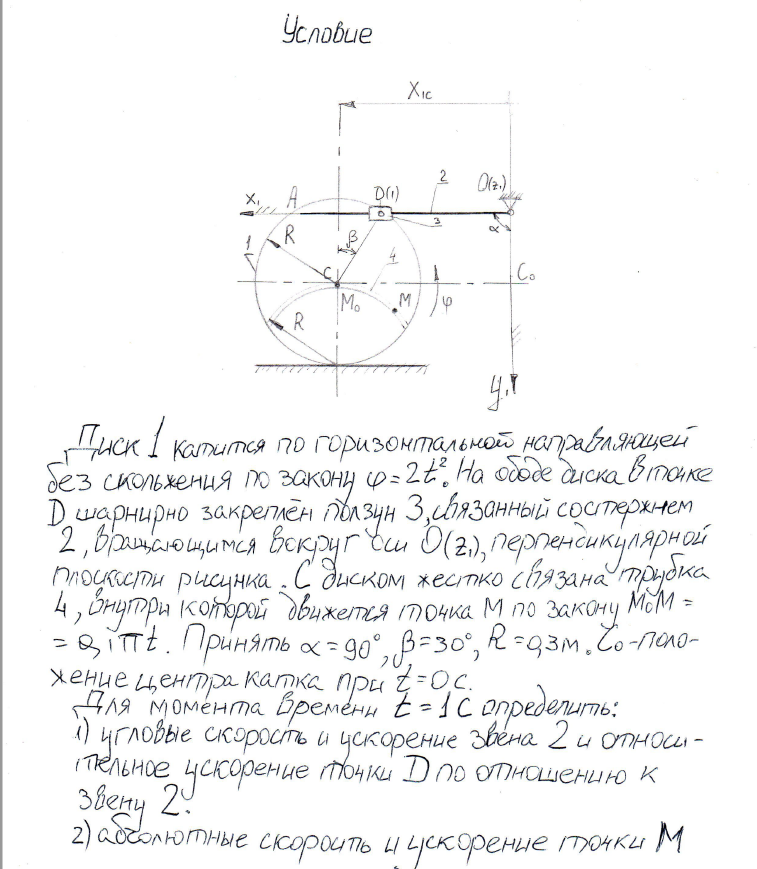 Условие
X₁c
X₁
A
D(1)
2
O(z₁)
3
α
R
β
1
4
C
C₀
M₀
M
φ
R
y₁
Диск 1 катится по горизонтальной направляющей
без скольжения по закону φ=2t². На ободе диска в точке
D шарнирно закреплён ползун 3, связанный со стержнем
2, вращающимся вокруг оси O(z₁), перпендикулярной
плоскости рисунка. С диском жестко связана трубка
4, внутри которой движется точка M по закону M₀M =
= 0,1πt. Принять α=90°, β=30°, R=0,3м. C₀-поло-
жение центра катка при t=0с.
Для момента времени t=1с определить:
1) угловые скорость и ускорение звена 2 и относи-
тельное ускорение точки D по отношению к
звену 2.
2) абсолютные скорость и ускорение точки M